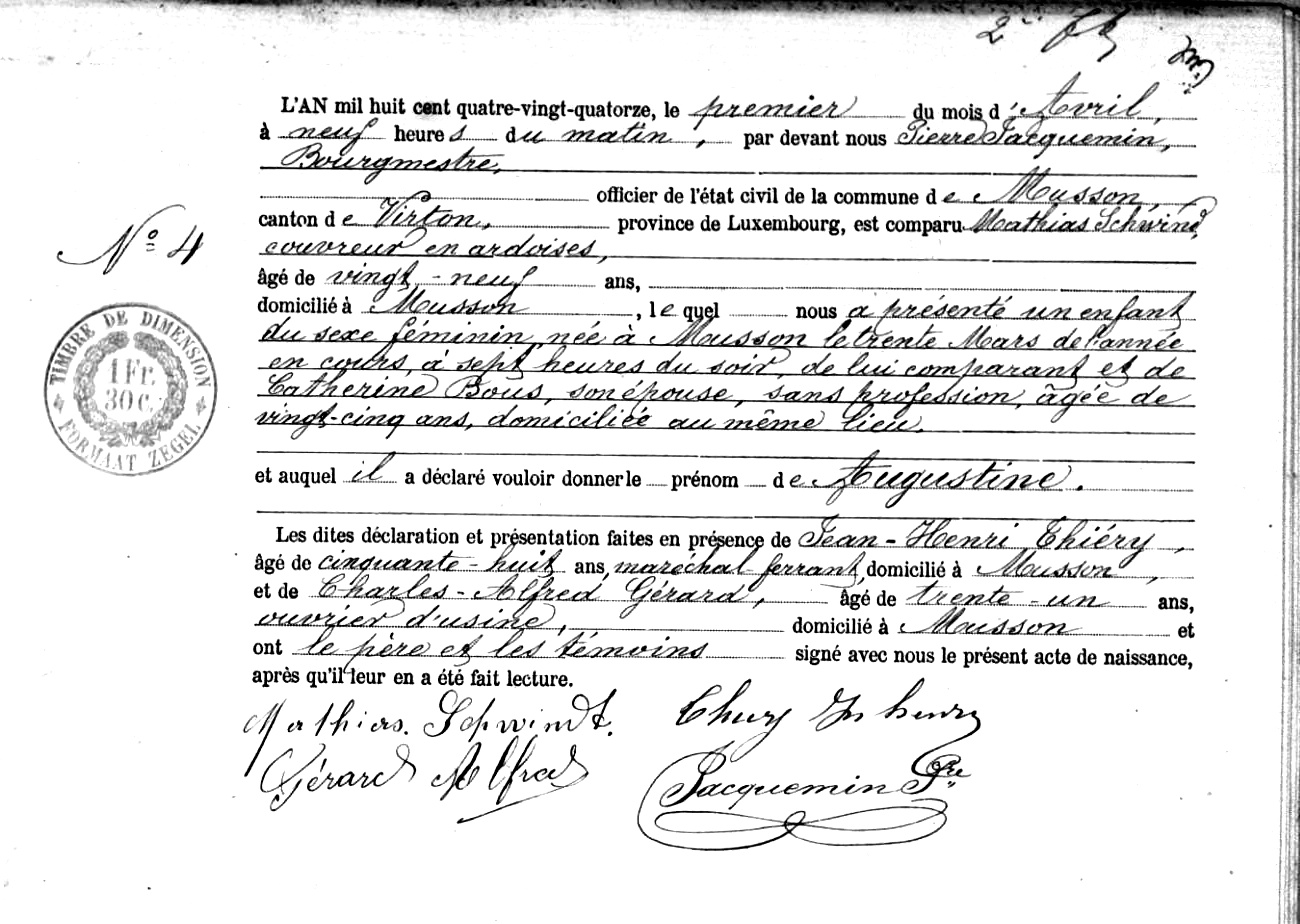 2
L'AN mil huit cent quatre-vingt-quatorze, le premier du mois d'Avril,
à neuf heures du matin, par devant nous Pierre Jacquemin,
Bourgmestre,
officier de l'état civil de la commune de Musson,
canton de Virton, province de Luxembourg, est comparu Mathias Schwind,
couvreur en ardoises,
âgé de vingt-neuf ans,
domicilié à Musson, lequel nous a présenté un enfant
du sexe féminin, née à Musson le trente Mars de l'année
en cours, à sept heures du soir, de lui comparant et de
Catherine Bous, son épouse, sans profession, âgée de
vingt-cinq ans, domiciliée au même lieu.
et auquel il a déclaré vouloir donner le prénom de Augustine.
Les dites déclaration et présentation faites en présence de Jean-Henri Thiéry,
âgé de cinquante-huit ans, maréchal ferrant, domicilié à Musson,
et de Charles-Alfred Gérard, âgé de trente-un ans,
ouvrier d'usine, domicilié à Musson et
ont le père et les témoins signé avec nous le présent acte de naissance,
après qu'il leur en a été fait lecture.
Mathias. Schwindt.
Gérard Alfred
Jacquemin Pre
N° 4
TIMBRE DE DIMENSION
1 Fr.
30 C.
FORMAAT ZEGEL